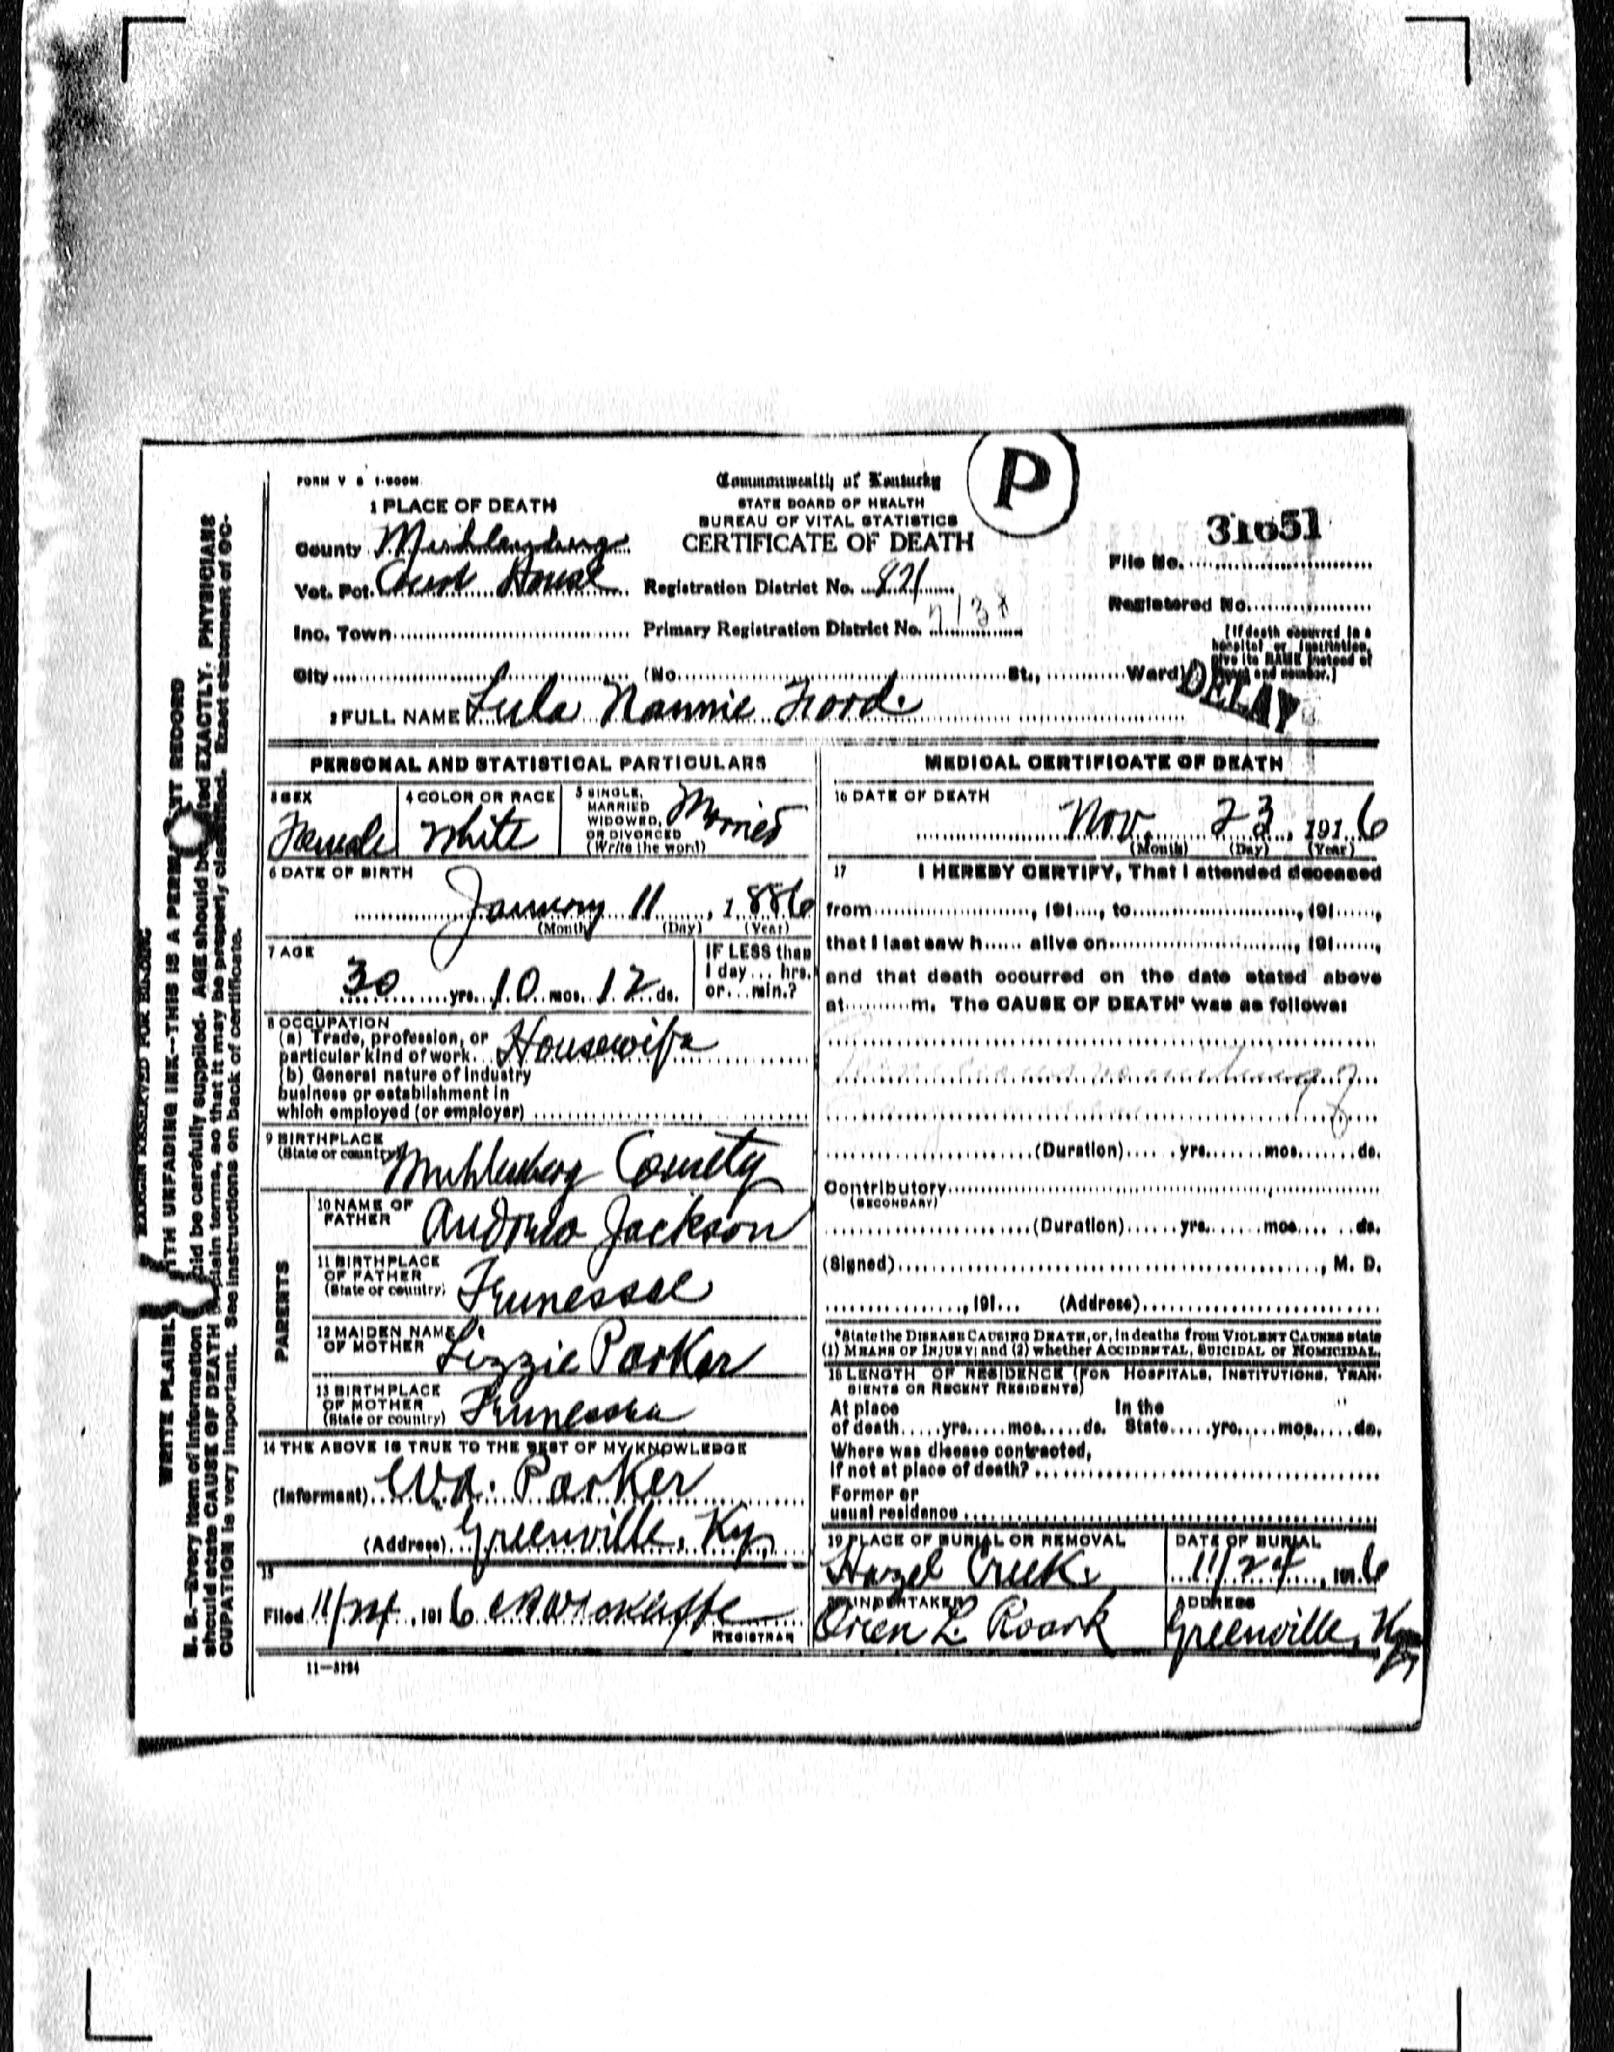 FORM V S 1-500M
Commonwealth of Kentucky
P
1 PLACE OF DEATH
STATE BOARD OF HEALTH
BUREAU OF VITAL STATISTICS
CERTIFICATE OF DEATH
31651
County Muhlenburg
File No.
Vot. Pct. Court House
Registration District No. 821
Registered No.
Inc. Town
Primary Registration District No. 7138
[If death occurred in a
hospital or institution,
give its NAME instead of
street and number.]
City (No. St., Ward)
DELAY
2 FULL NAME Lula Nannie Ford.
PERSONAL AND STATISTICAL PARTICULARS
3 SEX
Female
4 COLOR OR RACE
White
5 SINGLE,
MARRIED
WIDOWED,
OR DIVORCED
(Write the word)
Married
6 DATE OF BIRTH
January 11, 1886
(Month) (Day) (Year)
7 AGE
30 yrs. 10 mos. 12 ds.
IF LESS than
1 day... hrs.
or... min.?
8 OCCUPATION
(a) Trade, profession, or
particular kind of work. Housewife
(b) General nature of Industry
business or establishment in
which employed (or employer)
9 BIRTHPLACE
(State or country) Muhlenberg County
PARENTS
10 NAME OF
FATHER
Jackson
11 BIRTHPLACE
OF FATHER
(State or country) Tennessee
12 MAIDEN NAME
OF MOTHER Lizzie Parker
13 BIRTHPLACE
OF MOTHER
(State or country) Tennessee
14 THE ABOVE IS TRUE TO THE BEST OF MY KNOWLEDGE
(Informant) Parker
(Address) Greenville, Ky
15
Filed 11/24, 1916
REGISTRAR
11-3194
MEDICAL CERTIFICATE OF DEATH
16 DATE OF DEATH
Nov. 23, 1916
(Month) (Day) (Year)
17 I HEREBY CERTIFY, That I attended deceased
from , 191 , to , 191 ,
that I last saw h alive on , 191 ,
and that death occurred on the date stated above
at m. The CAUSE OF DEATH* was as follows:
vomiting of
(Duration) yrs. mos. ds.
Contributory
(SECONDARY)
(Duration) yrs. mos. ds.
(Signed) , M. D.
, 191 (Address)
*State the DISEASE CAUSING DEATH, or, in deaths from VIOLENT CAUSES state
(1) MEANS OF INJURY; and (2) whether ACCIDENTAL, SUICIDAL or HOMICIDAL.
18 LENGTH OF RESIDENCE (FOR HOSPITALS, INSTITUTIONS, TRAN-
SIENTS OR RECENT RESIDENTS)
At place In the
of death yrs. mos. ds. State yrs. mos. ds.
Where was disease contracted,
if not at place of death?
Former or
usual residence
19 PLACE OF BURIAL OR REMOVAL
Hazel Creek.
DATE OF BURIAL
11/24, 1916
20 UNDERTAKER
Orien L. Roark
ADDRESS
Greenville, Ky
MARGIN RESERVED FOR BINDING
WRITE PLAINLY WITH UNFADING INK--THIS IS A PERMANENT RECORD
N. B.--Every item of information should be carefully supplied. AGE should be stated EXACTLY. PHYSICIANS
should state CAUSE OF DEATH in plain terms, so that it may be properly classified. Exact statement of OC-
CUPATION is very important. See instructions on back of certificate.